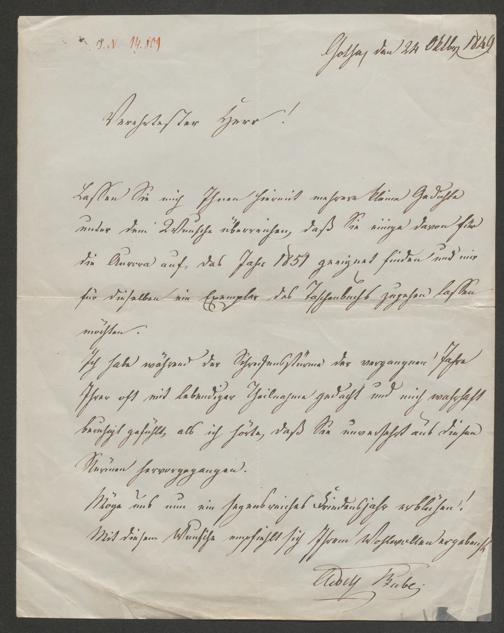 I.N. 14.101
Gotha, den 24 Oktbr 1849
Verehrtester Herr!
Lassen Sie mich Ihnen hiermit mehrere kleine Gedichte
unter dem Wunsche überreichen, daß Sie einige davon für
die Aurora auf das Jahr 1851 geeignet finden und mir
für dieselben ein Exemplar des Taschenbuchs zugehen lassen
möchten.
Ich habe während der Schreckensstürme der vergangnen Jahre
Ihrer oft mit lebendiger Theilnahme gedacht und mich wahrhaft
beruhigt gefühlt, als ich hörte, daß Sie unversehrt aus diesen
Stürmen hervorgegangen.
Möge uns nun ein segensreiches Friedensjahr erblühen!
Mit diesem Wunsche empfiehlt sich Ihrem Wohlwollen ergebenst
Adolf Bube